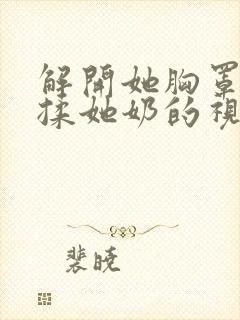 解開她胸罩
揉她奶的視
裴曉